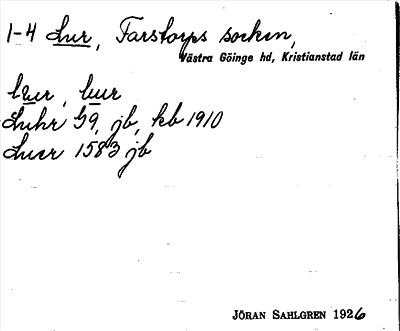 1-4 Lur, Farstorps socken,
Västra Göinge hd, Kristianstad län
Luhr 59, jb, kb 1910
Luer 1583 jb
JÖRAN SAHLGREN 1926